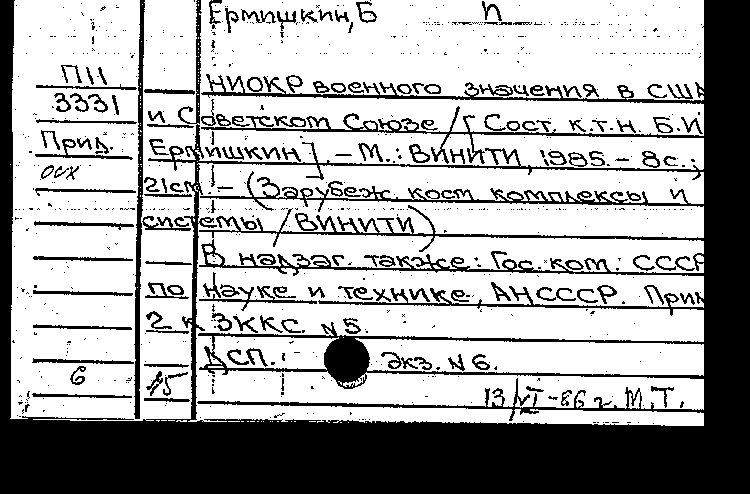 Ермишкин, Б n
П11 НИОКР военного значения в США
3331 и Советском Союзе / [Сост. к.т.н. Б.И
Прил. Ермишкин]. – М.: ВИНИТИ, 1985. – 8с.;
осх 21см – (Зарубеж. косм комплексы и
системы / ВИНИТИ).
В надзаг. также: Гос. ком. СССР
по науке и технике, АН СССР. Прил
2 к ЗККС N5.
ДСП.: Экз. N6.
6 15
13/VI-86 г. М.Т.